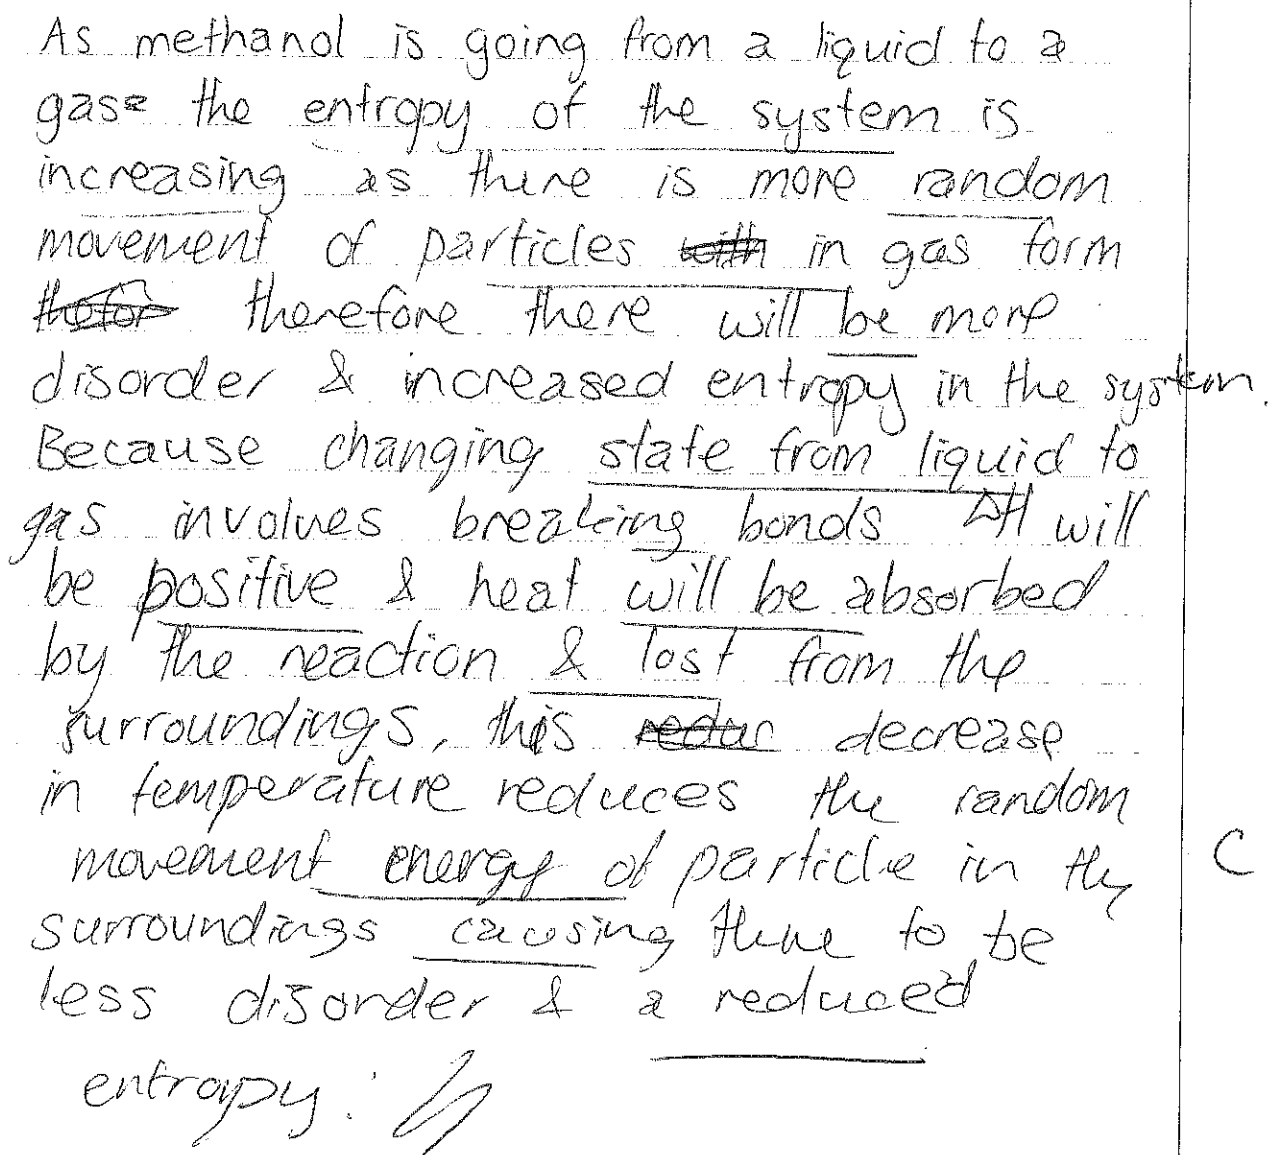 As methanol is going from a liquid to a
gas the entropy of the system is
increasing as there is more random
movement of particles with in gas form
therfor therefore there will be more
disorder & increased entropy in the system.
Because changing state from liquid to
gas involves breaking bonds ΔH will
be positive & heat will be absorbed
by the reaction & lost from the
surroundings, this reduc decrease
in temperature reduces the random
movement energy of particle in the
C
surroundings causing there to be
less disorder & a reduced
entropy.